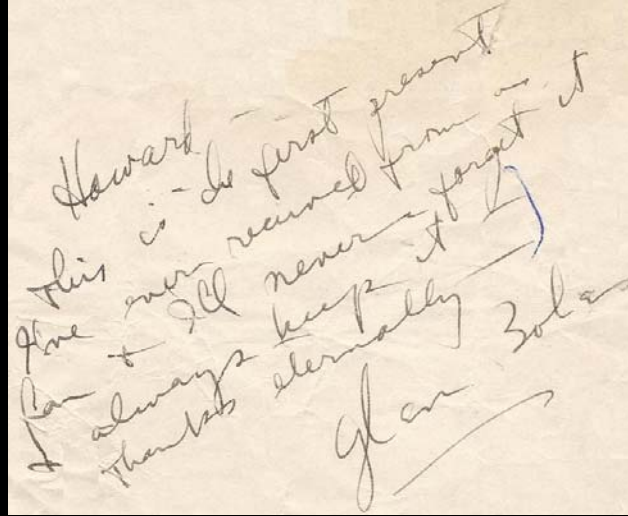 Howard –
This is the first present
I've ever received from a
fan + I'll never forget it
& always keep it
Thanks eternally
Glen